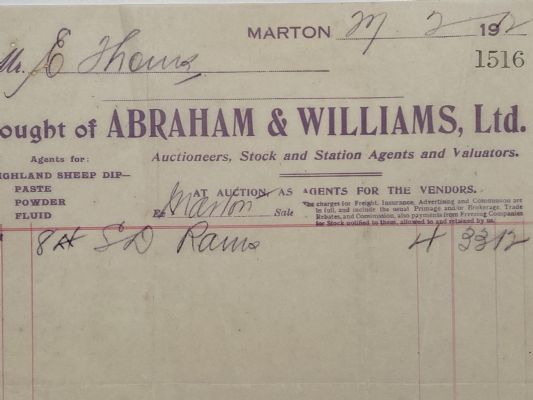 MARTON
1516
Mr. E Thoms
ought of ABRAHAM & WILLIAMS, Ltd.
Agents for:
Auctioneers, Stock and Station Agents and Valuators.
IGHLAND SHEEP DIP—
PASTE
POWDER
FLUID
AT AUCTION, AS AGENTS FOR THE VENDORS.
Ex Marton Sale
The charges for Freight, Insurance, Advertising and Commission are
in full, and include the usual Primage and/or Brokerage. Trade
Rebates, and Commission, also payments from Freezing Companies
for Stock notified to them, allowed to and retained by us.
SD Rams 4 33 12